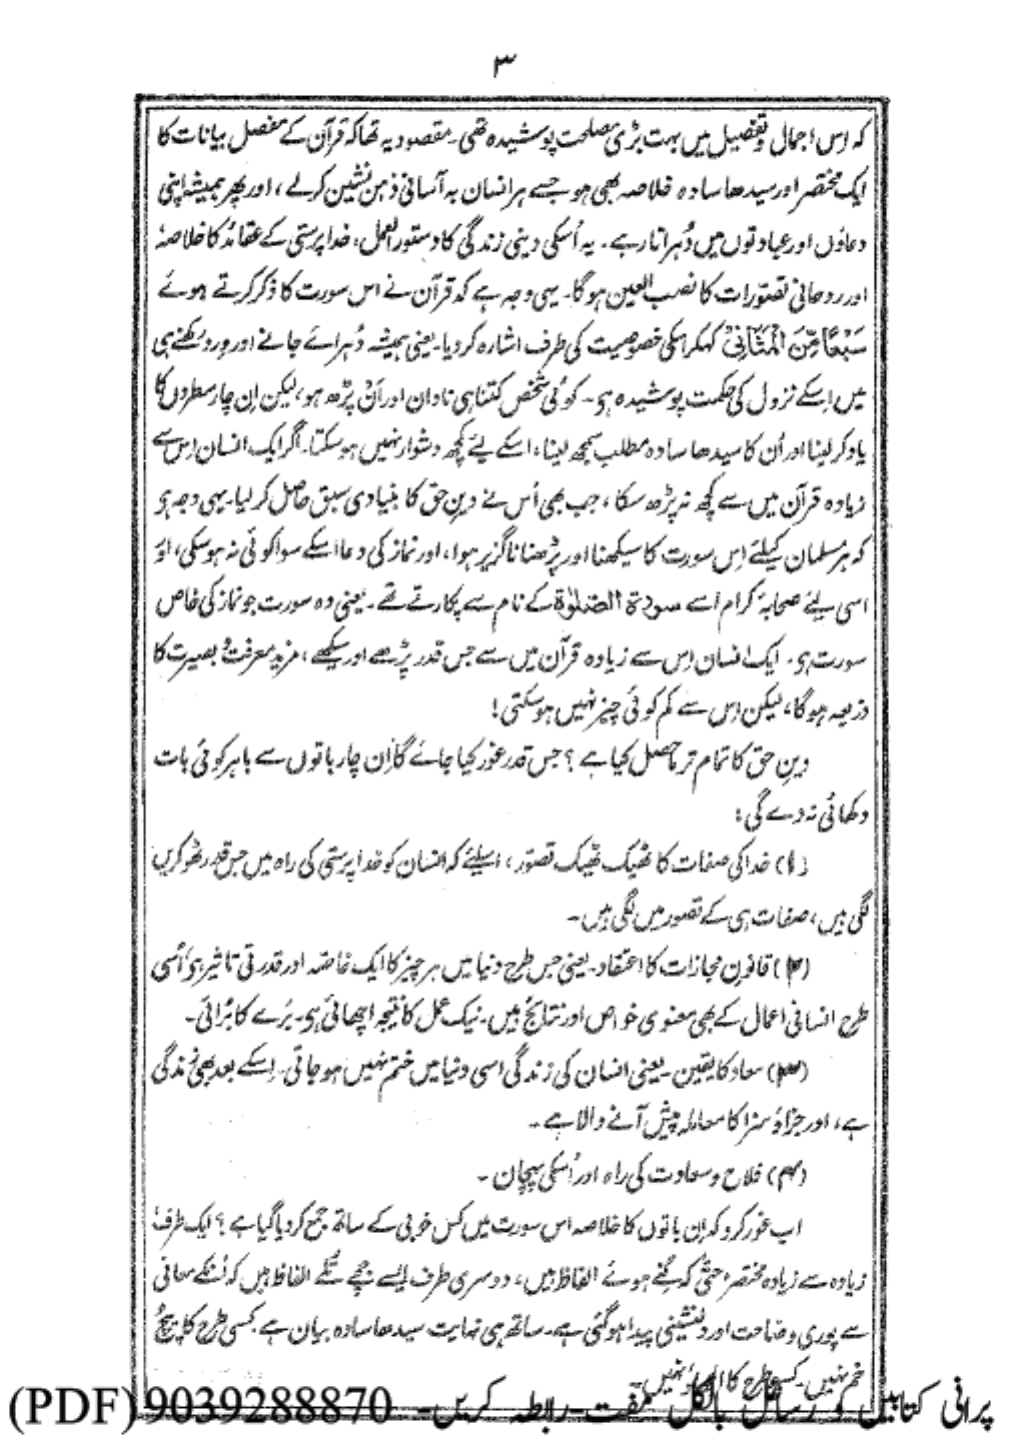 ۳
کہ اِس اجمال و تفصیل میں بہت بڑی مصلحت پوشیدہ تھی۔ مقصود یہ تھا کہ قرآن کے مفصل بیانات کا
ایک مختصر اور سیدھا سادہ خلاصہ بھی ہو جسے ہر انسان بہ آسانی ذہن نشین کر لے، اور پھر ہمیشہ اپنی
دعاؤں اور عبادتوں میں دُہراتا رہے۔ یہ اُسکی دینی زندگی کا دستور العمل، خدا پرستی کے عقائد کا خلاصہ
اور روحانی تصوّرات کا نصب العین ہوگا۔ یہی وجہ ہے کہ قرآن نے اس سورت کا ذکر کرتے ہوئے
سَبْعًا مِّنَ الْمَثَانِیْ کہکر اسکی خصوصیت کی طرف اشارہ کر دیا۔ یعنی ہمیشہ دُہرائے جانے اور ورد رکھنے ہی
میں اسکے نزول کی حکمت پوشیدہ ہی۔ کوئی شخص کتنا ہی نادان اور اَن پڑھ ہو، لیکن اِن چار سطروں کا
یاد کر لینا اور اُن کا سیدھا سادہ مطلب سمجھ لینا، اسکے لیے کچھ دشوار نہیں ہو سکتا۔ اگر ایک انسان اِس سے
زیادہ قرآن میں سے کچھ نہ پڑھ سکا، جب بھی اُس نے دینِ حق کا بنیادی سبق حاصل کر لیا۔ یہی وجہ ہو
کہ ہر مسلمان کیلئے اِس سورت کا سیکھنا اور پڑھنا ناگزیر ہوا، اور نماز کی دعا اسکے سوا کوئی نہ ہو سکی، اور
اسی لیے صحابۂ کرام اسے سورۃ الصلوٰۃ کے نام سے پکارتے تھے۔ یعنی وہ سورت جو نماز کی خاص
سورت ہی۔ ایک انسان اِس سے زیادہ قرآن میں سے جس قدر پڑھے اور سیکھے، مزید معرفت و بصیرت کا
ذریعہ ہوگا، لیکن اِس سے کم کوئی چیز نہیں ہو سکتی!
دینِ حق کا تمام تر ماحصل کیا ہے؟ جس قدر غور کیا جائے گا اِن چار باتوں سے باہر کوئی بات
دکھائی نہ دے گی:
(۱) خدا کی صفات کا ٹھیک ٹھیک تصوّر، اسلئے کہ انسان کو خدا پرستی کی راہ میں جس قدر ٹھوکریں
لگی ہیں، صفات ہی کے تصور میں لگی ہیں۔
(۲) قانونِ مجازات کا اعتقاد۔ یعنی جس طرح دنیا میں ہر چیز کا ایک خاصہ اور قدرتی تاثیر ہو اُسی
طرح انسانی اعمال کے بھی معنوی خواص اور نتائج ہیں۔ نیک عمل کا نتیجہ اچھائی ہی۔ بُرے کا بُرائی۔
(۳) معاد کا یقین۔ یعنی انسان کی زندگی اسی دنیا میں ختم نہیں ہو جاتی۔ اِسکے بعد بھی زندگی
ہے، اور جزاؤ سزا کا معاملہ پیش آنے والا ہے۔
(۴) فلاح و سعادت کی راہ اور اُسکی پہچان۔
اب غور کرو کہ اِن باتوں کا خلاصہ اس سورت میں کس خوبی کے ساتھ جمع کر دیا گیا ہے؟ ایک طرف
زیادہ سے زیادہ مختصر، حتّٰی کہ گنے ہوئے الفاظ ہیں، دوسری طرف ایسے جچے تُلے الفاظ ہیں کہ اُنکے معانی
سے پوری وضاحت اور دلنشینی پیدا ہو گئی ہے۔ ساتھ ہی نہایت سیدھا سادہ بیان ہے۔ کسی طرح کا پیچ و
خم نہیں۔ کسی طرح کا الجھاؤ نہیں۔
پرانی کتابیں و رسائل بالکل مفت۔ رابطہ کریں۔ 9039288870 (PDF)